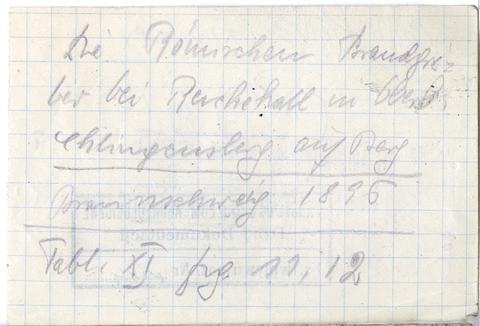 Die Römischen Brandgrä-
ber bei Reichehall in
Chlingensberg auf Berg
Braunschweig 1896
Tabl. XI fig. 11, 12